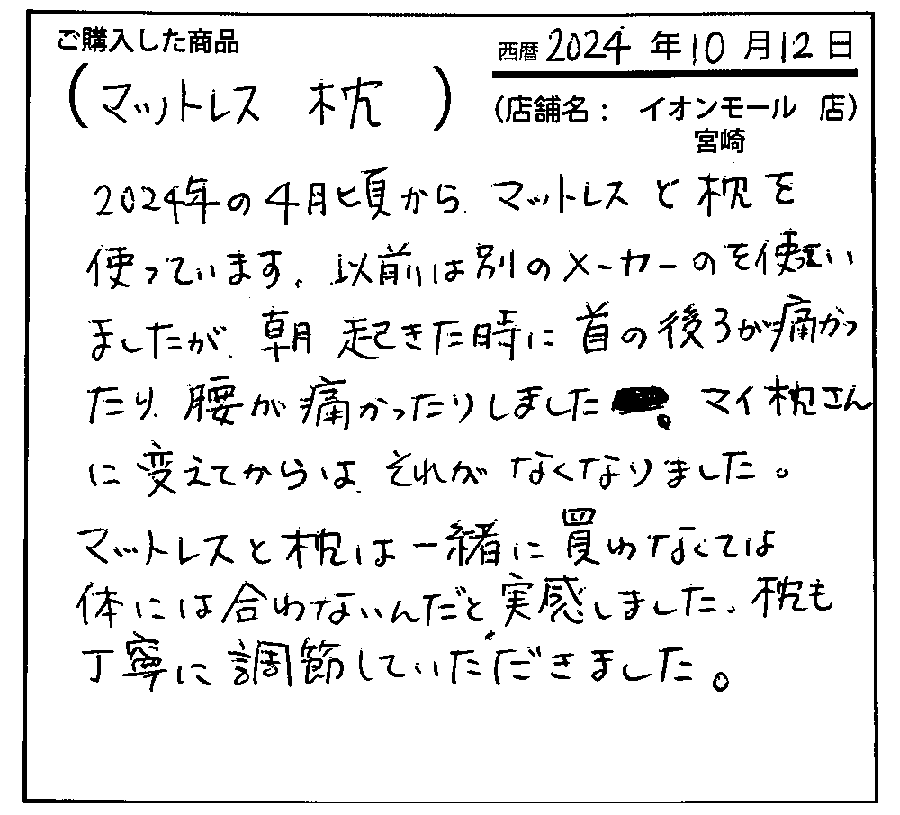 ご購入した商品
西暦 2024 年 10 月 12 日
(マットレス 枕)
(店舗名： イオンモール 店)
宮崎
2024年の4月頃から、マットレスと枕を
使っています。以前は別のメーカーのを使い
ましたが、朝起きた時に首の後ろが痛かっ
たり、腰が痛かったりしました。マイ枕さん
に変えてからは、それがなくなりました。
マットレスと枕は一緒に買わなくては
体には合わないんだと実感しました。枕も
丁寧に調節していただきました。